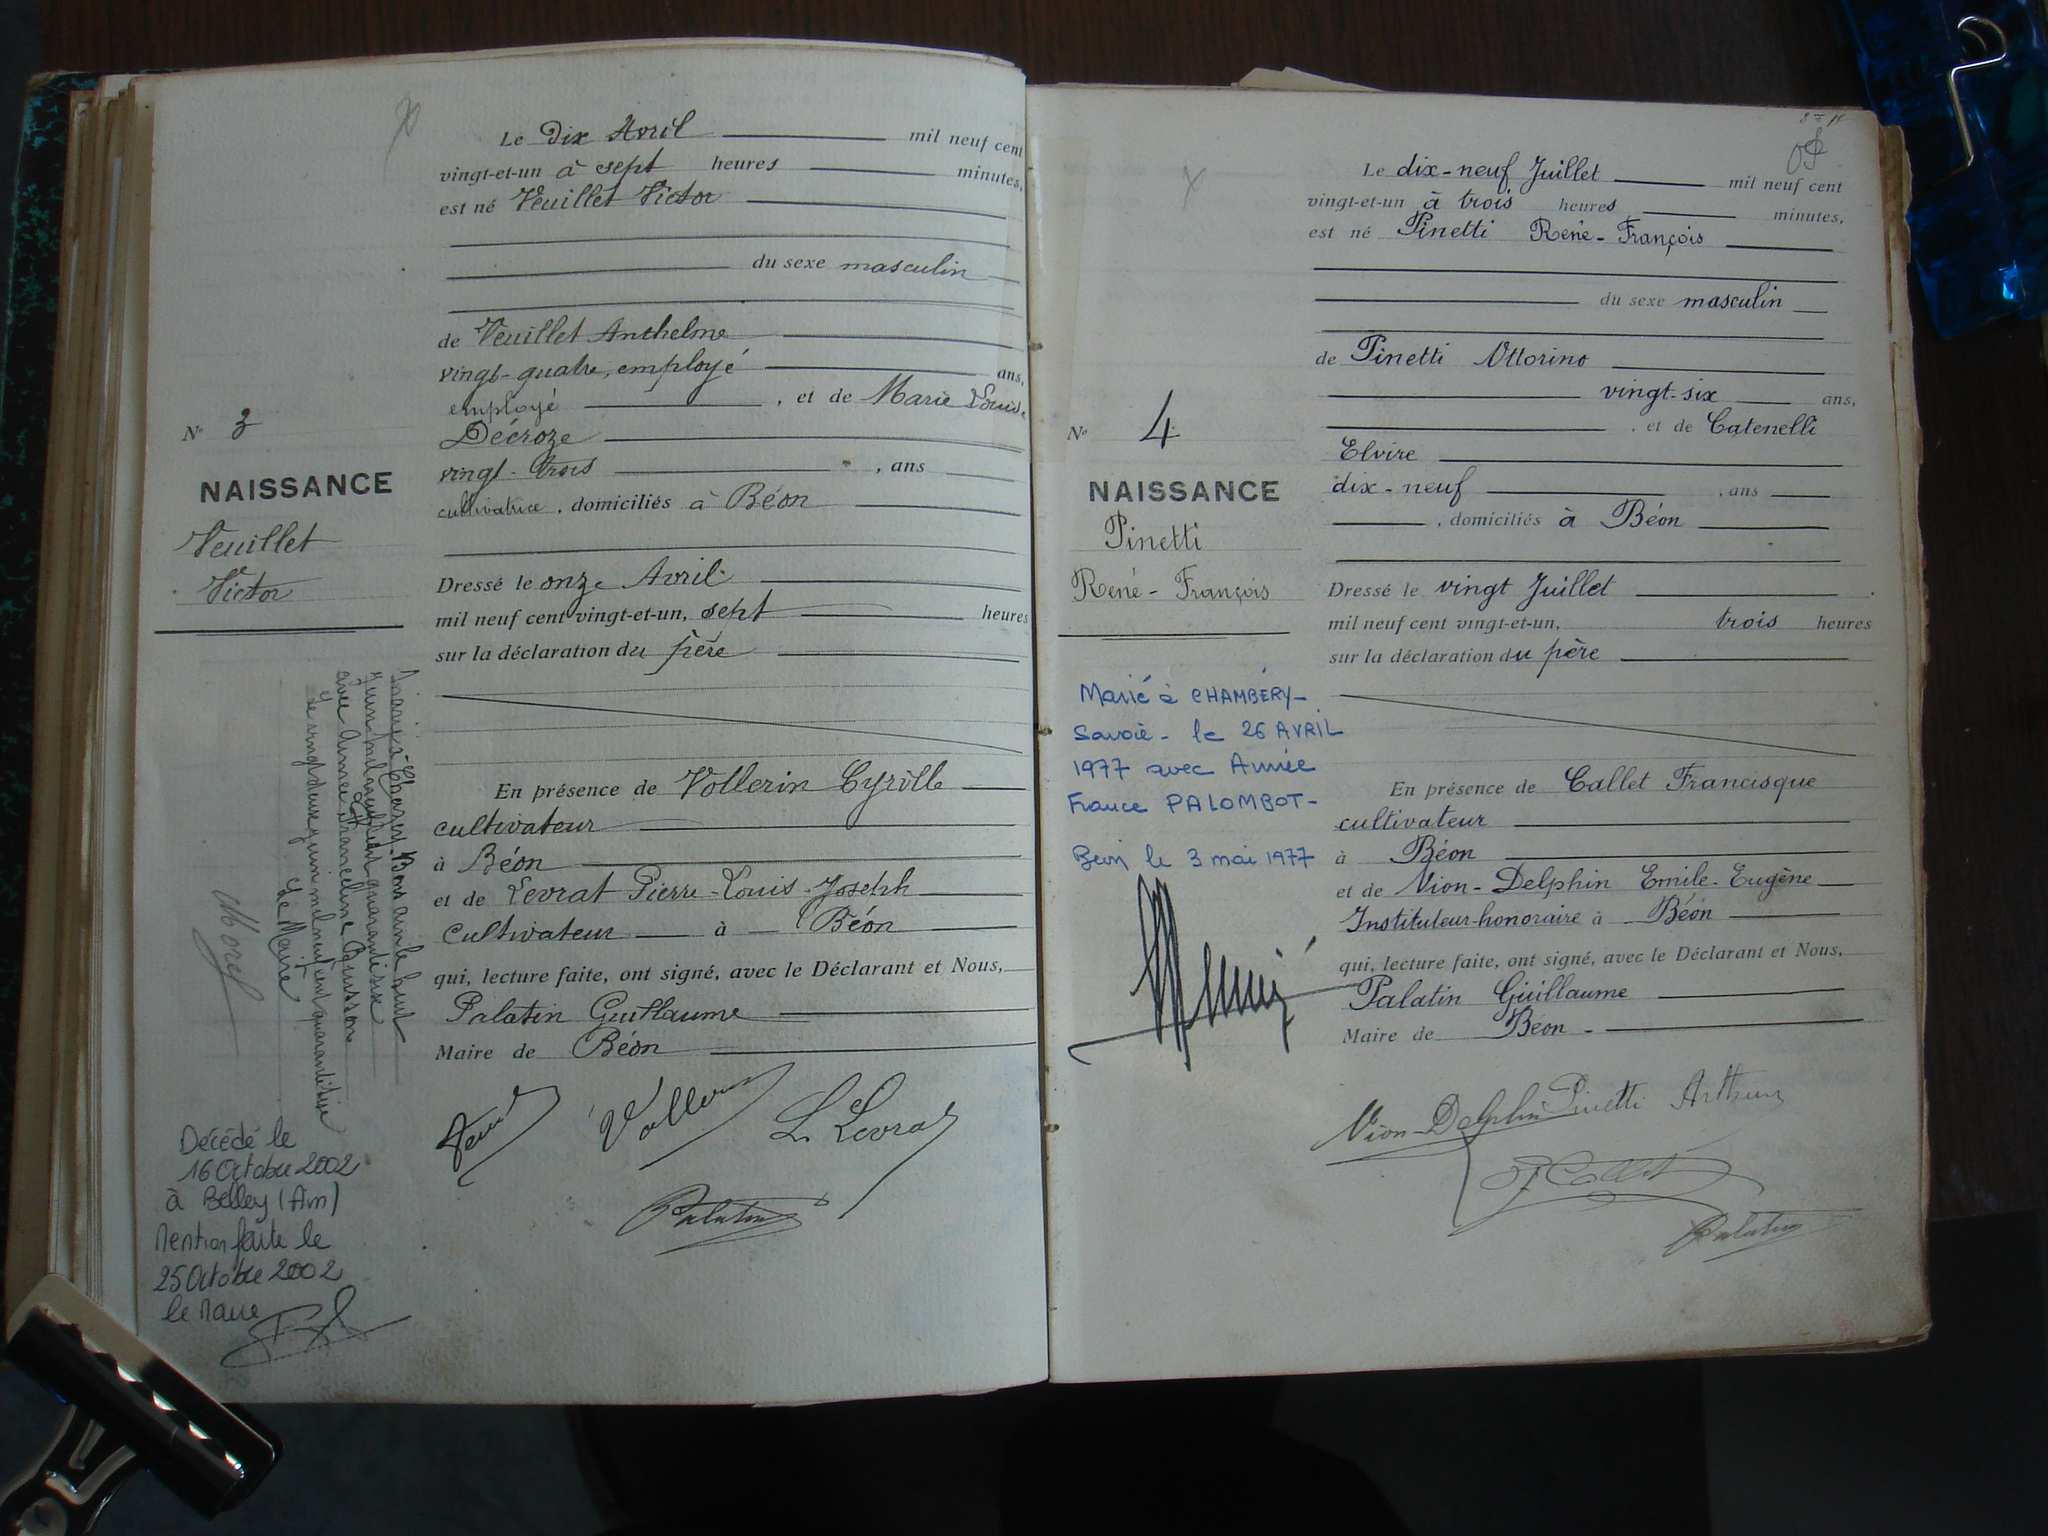 Le Dix Avril mil neuf cent
vingt-et-un à sept heures minutes,
est né Veuillet Victor
du sexe masculin
de Veuillet Anthelme
vingt-quatre, employé ans,
employé , et de Marie Louise
Décroze
vingt-trois , ans
cultivatrice, domiciliés à Béon
N° 3
NAISSANCE
Veuillet
Victor
Dressé le onze Avril
mil neuf cent vingt-et-un, sept heures
sur la déclaration du père
En présence de Vollerin Cyrille
cultivateur
à Béon
et de Levrat Pierre-Louis-Joseph
cultivateur à Béon
qui, lecture faite, ont signé, avec le Déclarant et Nous,
Palatin Guillaume
Maire de Béon
Vollerin
L. Levrat
Palatin
juin mil neuf cent quarante six
avec Aimée Franceline
Le vingt deux juin mil neuf cent quarante six
Le Maire
Morel
Décédé le
16 Octobre 2002
à Belley (Ain)
Mention faite le
25 Octobre 2002
le Maire
Le dix-neuf Juillet mil neuf cent
vingt-et-un à trois heures minutes,
est né Pinetti René-François
du sexe masculin
de Pinetti Ottorino
vingt-six ans,
, et de Catenelli
Elvire
dix-neuf , ans
, domiciliés à Béon
N° 4
NAISSANCE
Pinetti
René-François
Dressé le vingt Juillet
mil neuf cent vingt-et-un, trois heures
sur la déclaration du père
Marié à CHAMBÉRY-
Savoie - le 26 AVRIL
1977 avec Aimée
France PALOMBOT-
Béon le 3 mai 1977
En présence de Callet Francisque
cultivateur
à Béon
et de Vion-Delphin Emile-Eugène
Instituteur-honoraire à Béon
qui, lecture faite, ont signé, avec le Déclarant et Nous,
Palatin Guillaume
Maire de Béon -
Vion-Delphin Pinetti Arthur
F. Callet
Palatin